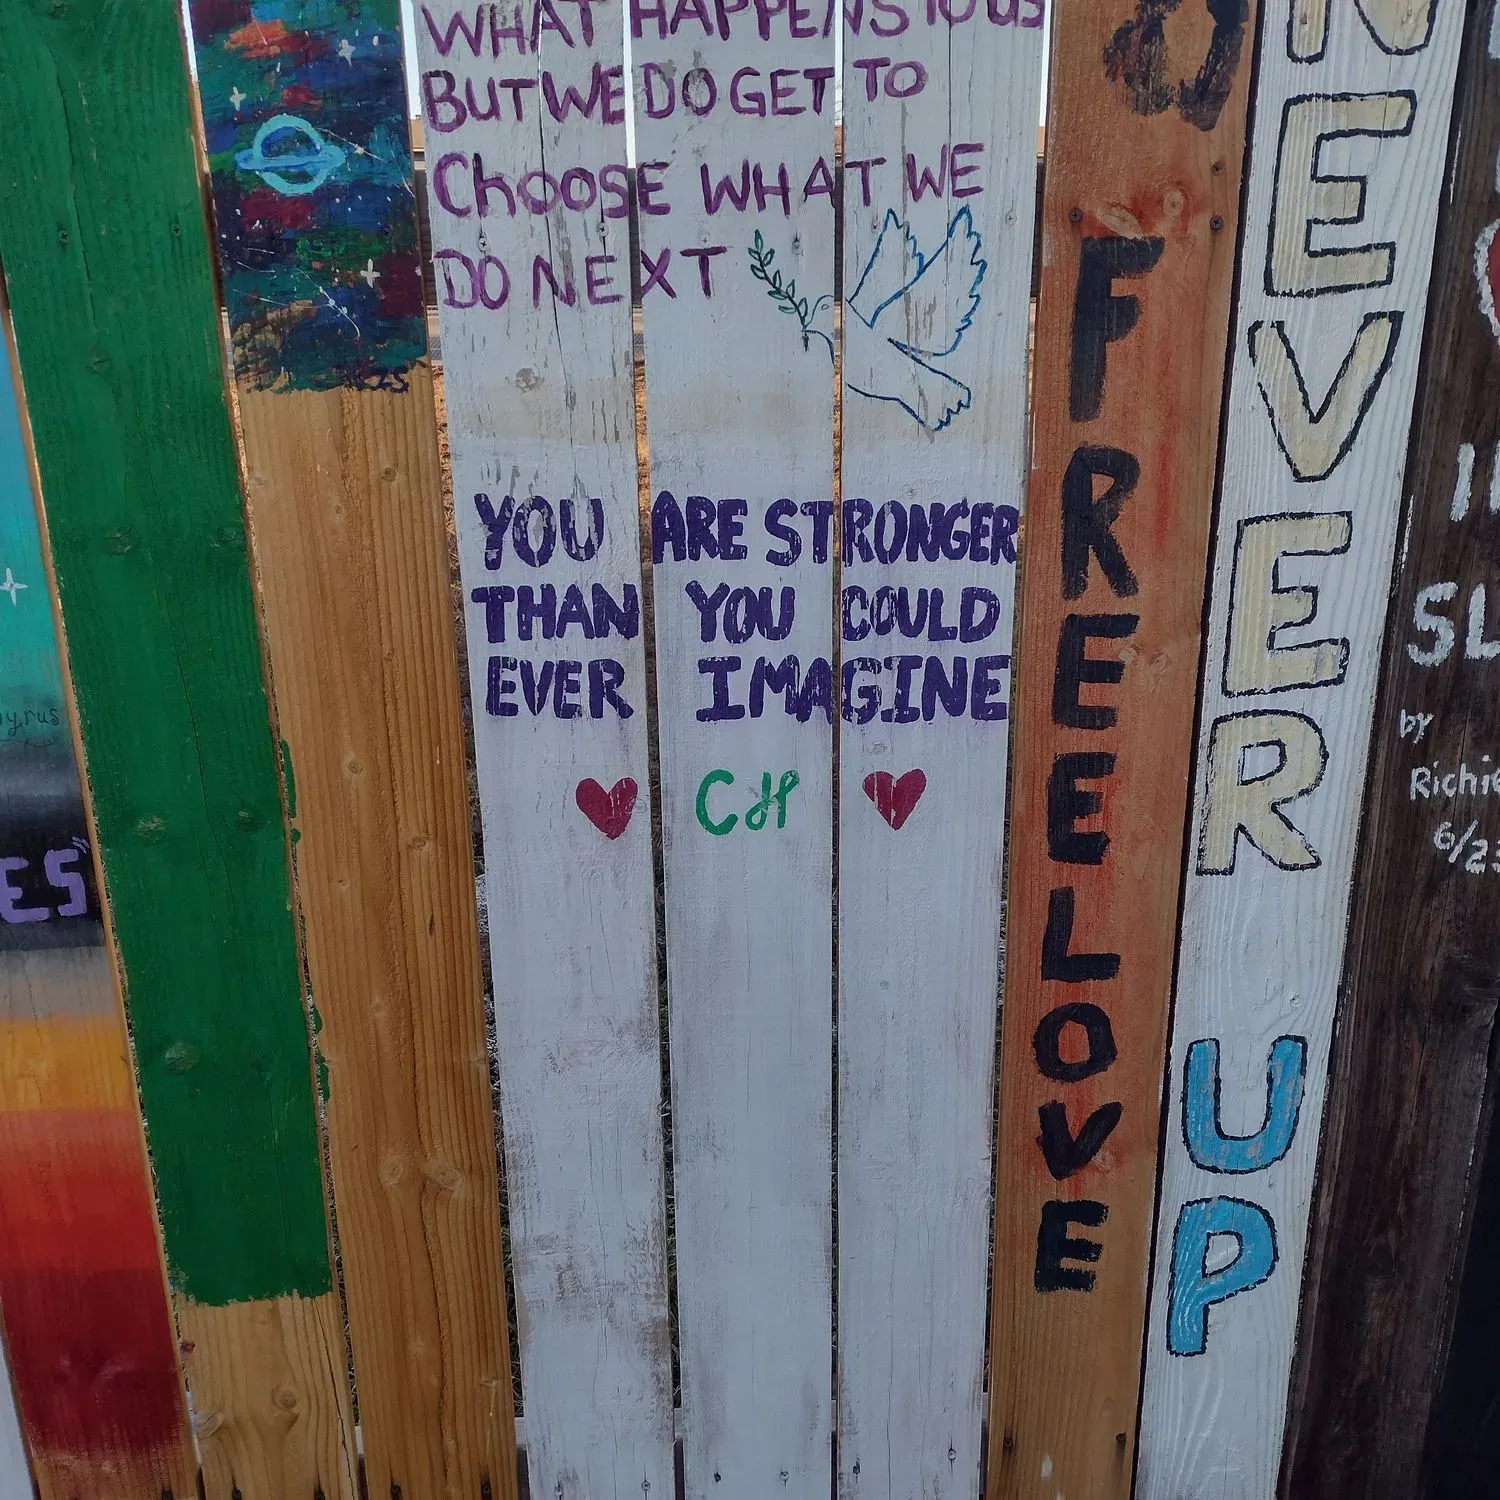 WHAT HAPPENS TO US
BUT WE DO GET TO
CHOOSE WHAT WE
DO NEXT
YOU ARE STRONGER
THAN YOU COULD
EVER IMAGINE
CH
&
FREELOVE
NEVER
UP
ES"
SL
by
Richie
6/23